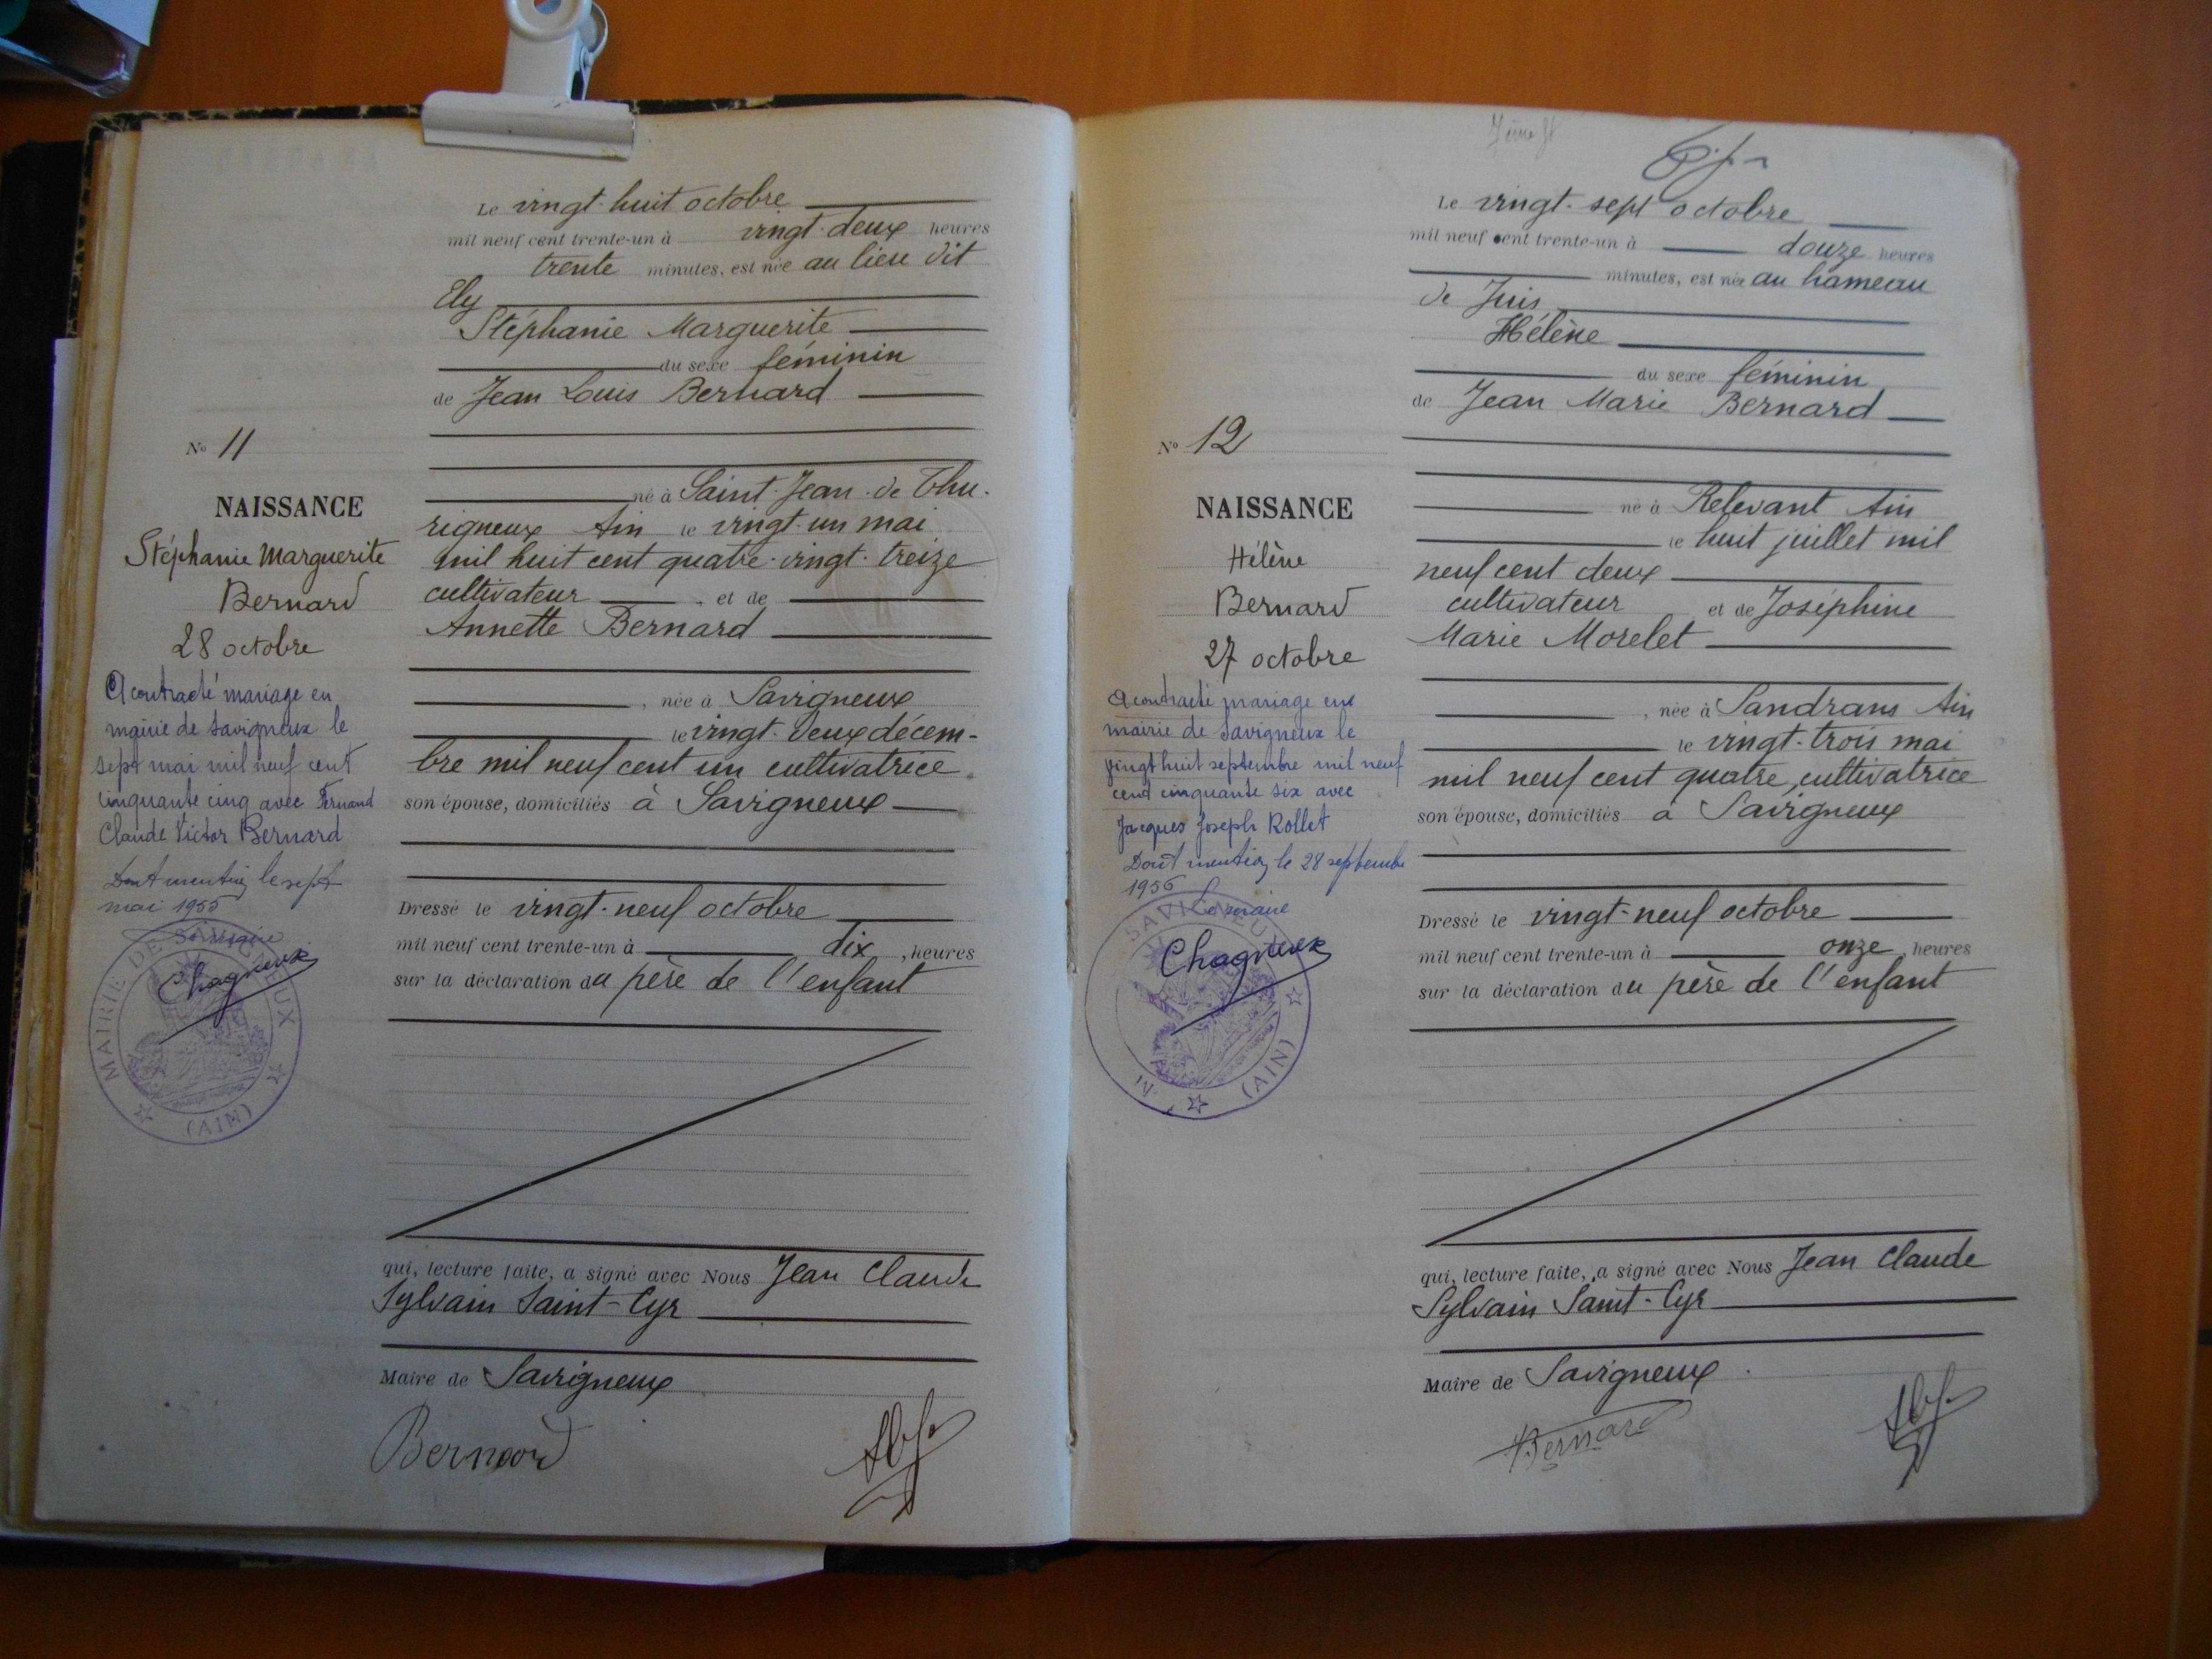 Le vingt-huit octobre
mil neuf cent trente-un à vingt-deux heures
trente minutes, est née au lieu dit
Ely
Stéphanie Marguerite
du sexe féminin
de Jean Louis Bernard
né à Saint-Jean-de Thu-
rigneux Ain le vingt-un mai
mil huit cent quatre-vingt-treize
cultivateur, et de
Annette Bernard
, née à Savigneux
le vingt-deux décem-
bre mil neuf cent un cultivatrice
son épouse, domiciliés à Savigneux
Dressé le vingt-neuf octobre
mil neuf cent trente-un à dix, heures
sur la déclaration du père de l'enfant
qui, lecture faite, a signé avec Nous Jean Claude
Sylvain Saint-Cyr
Maire de Savigneux
Bernard
No 11
NAISSANCE
Stéphanie Marguerite
Bernard
28 octobre
A contracté mariage en
mairie de Savigneux le
sept mai mil neuf cent
cinquante cinq avec Fernand
Claude Victor Bernard
Dont mention le sept
mai 1955
Le maire
Chagneux
MAIRIE DE SAVIGNEUX
(AIN)
Le vingt-sept octobre
mil neuf cent trente-un à douze heures
minutes, est née au hameau
de Juis
Hélène
du sexe féminin
de Jean Marie Bernard
né à Relevant Ain
le huit juillet mil
neuf cent deux
cultivateur et de Joséphine
Marie Morelet
, née à Sandrans Ain
le vingt-trois mai
mil neuf cent quatre, cultivatrice
son épouse, domiciliés à Savigneux
Dressé le vingt-neuf octobre
mil neuf cent trente-un à onze, heures
sur la déclaration du père de l'enfant
qui, lecture faite, a signé avec Nous Jean Claude
Sylvain Saint-Cyr
Maire de Savigneux
Bernard
No 12
NAISSANCE
Hélène
Bernard
27 octobre
A contracté mariage en
mairie de Savigneux le
vingt huit septembre mil neuf
cent cinquante six avec
Jacques Joseph Rollet
Dont mention le 28 septembre
1956 Le maire
Chagneux
SAVIGNEUX
(AIN)